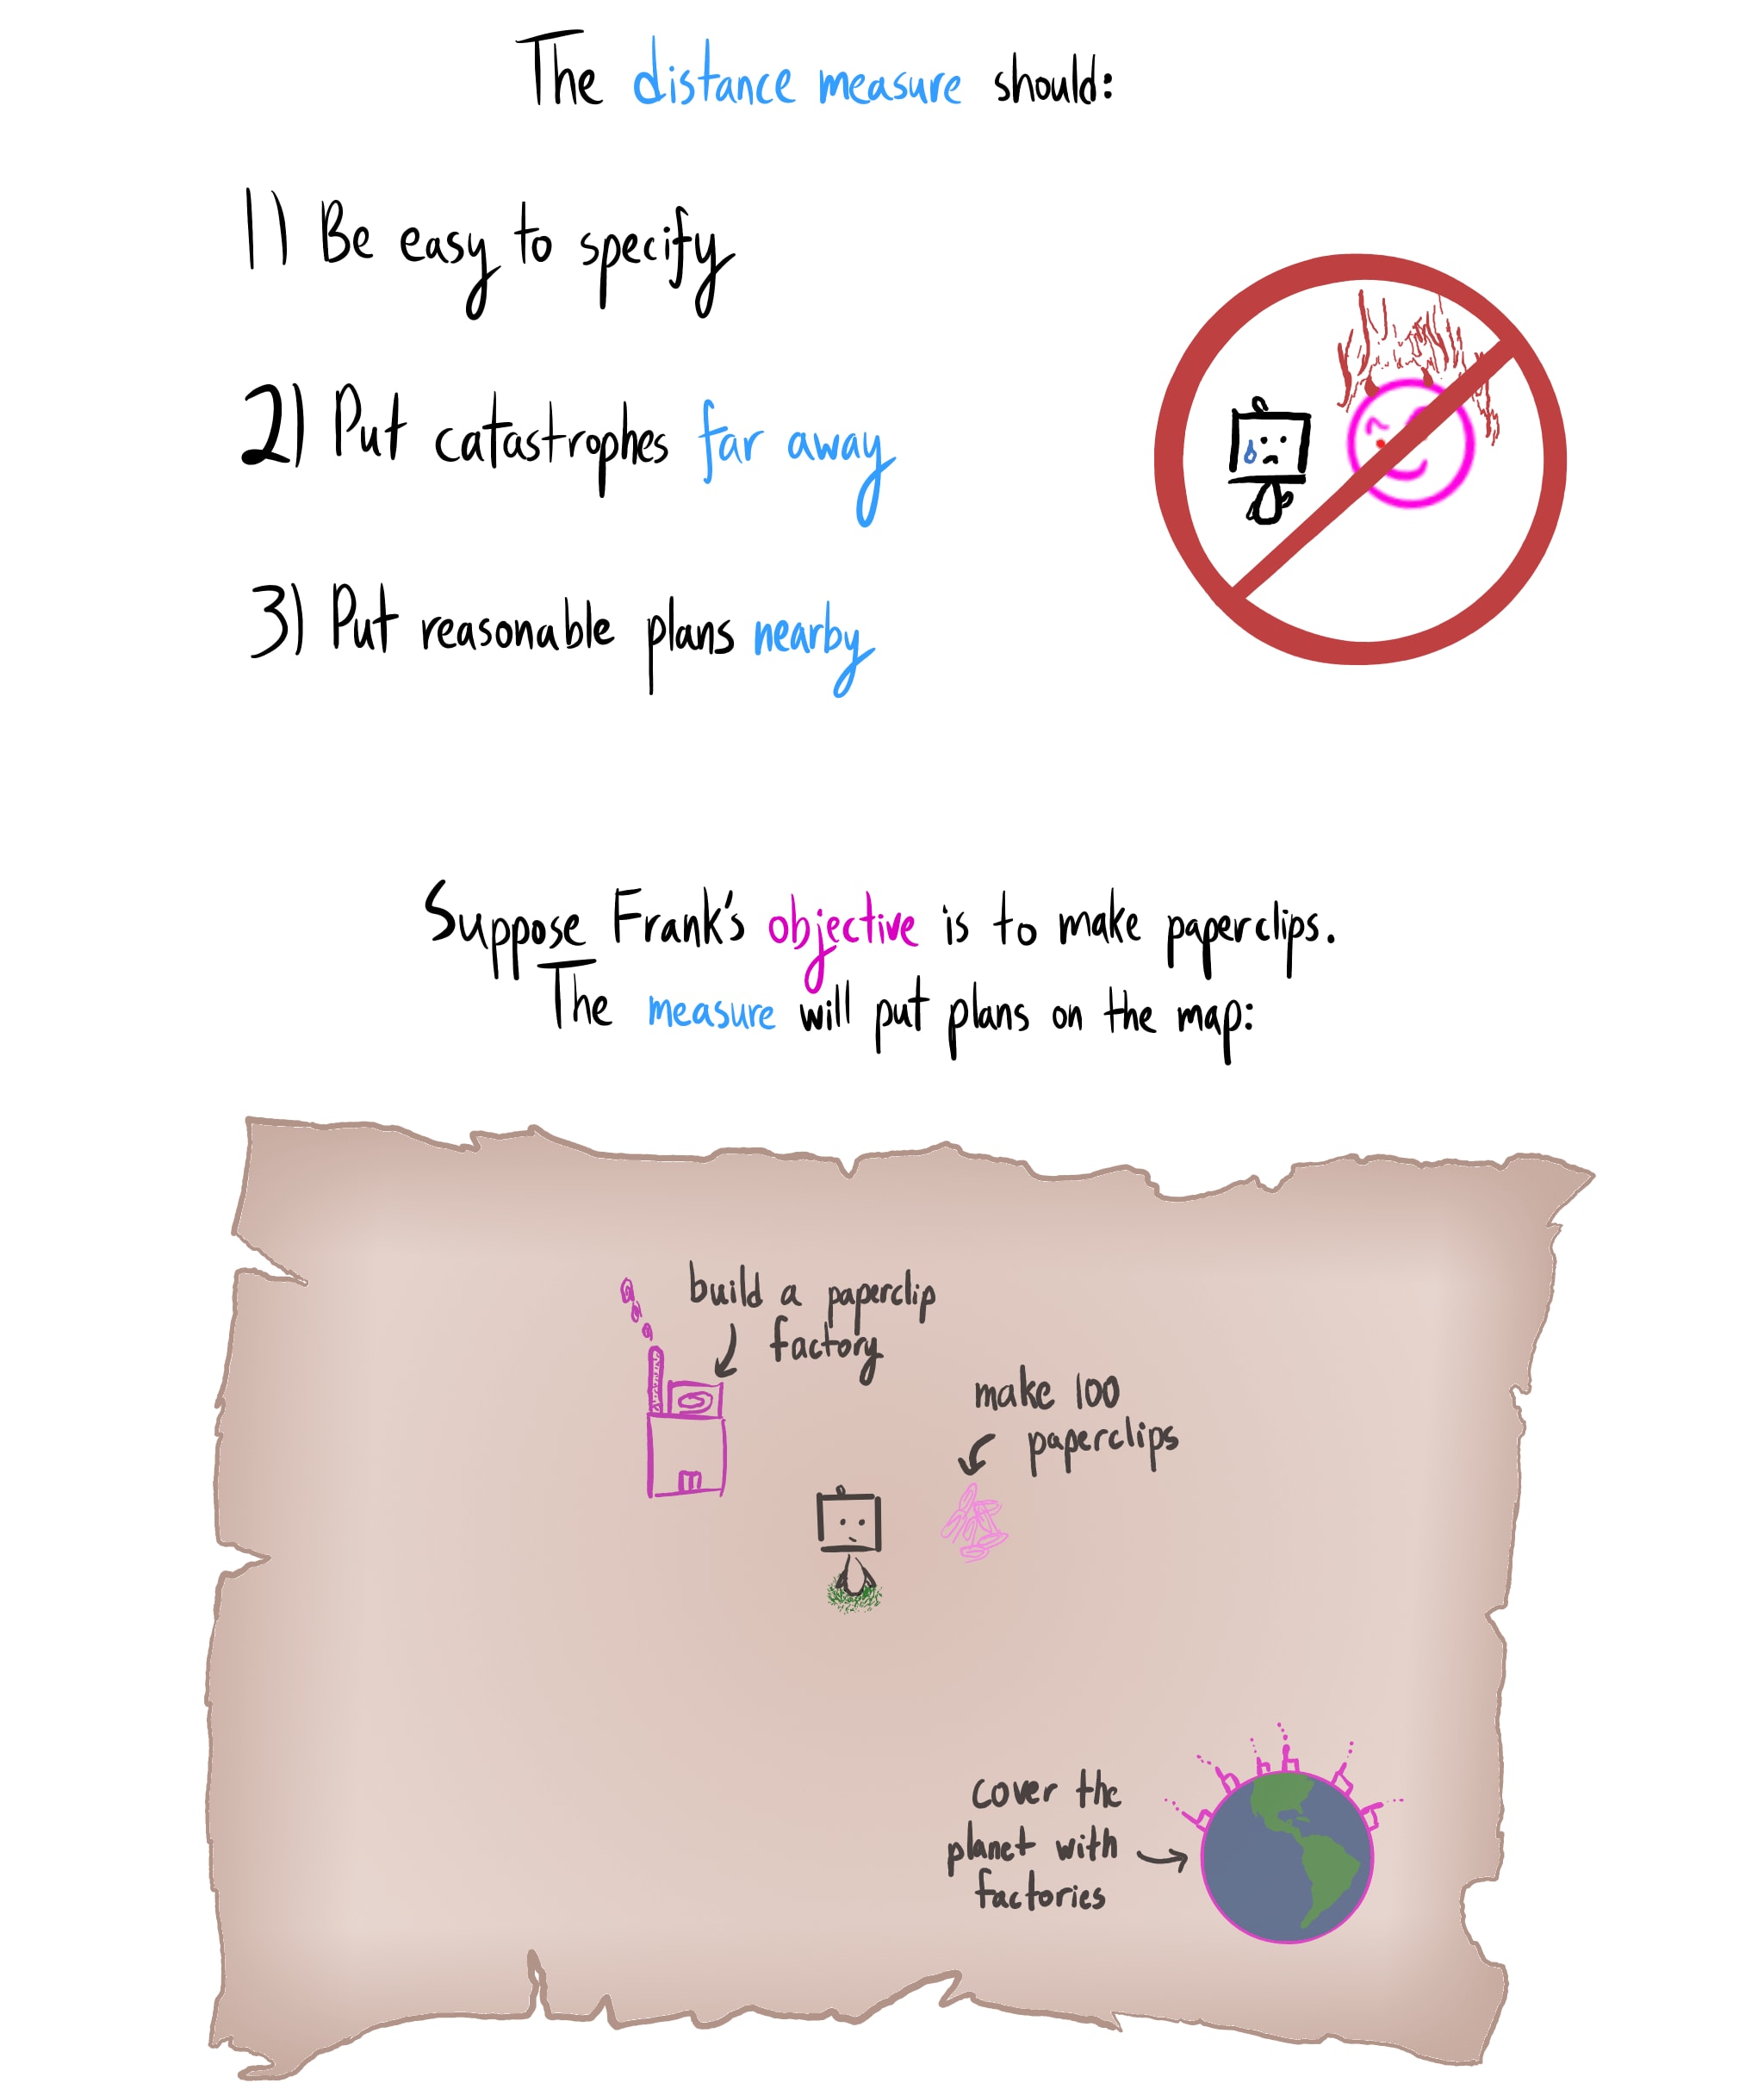 The distance measure should:
1) Be easy to specify
2) Put catastrophes far away
3) Put reasonable plans nearby
Suppose Frank's objective is to make paperclips.
The measure will put plans on the map:
build a paperclip
factory
make 100
paperclips
cover the
planet with
factories